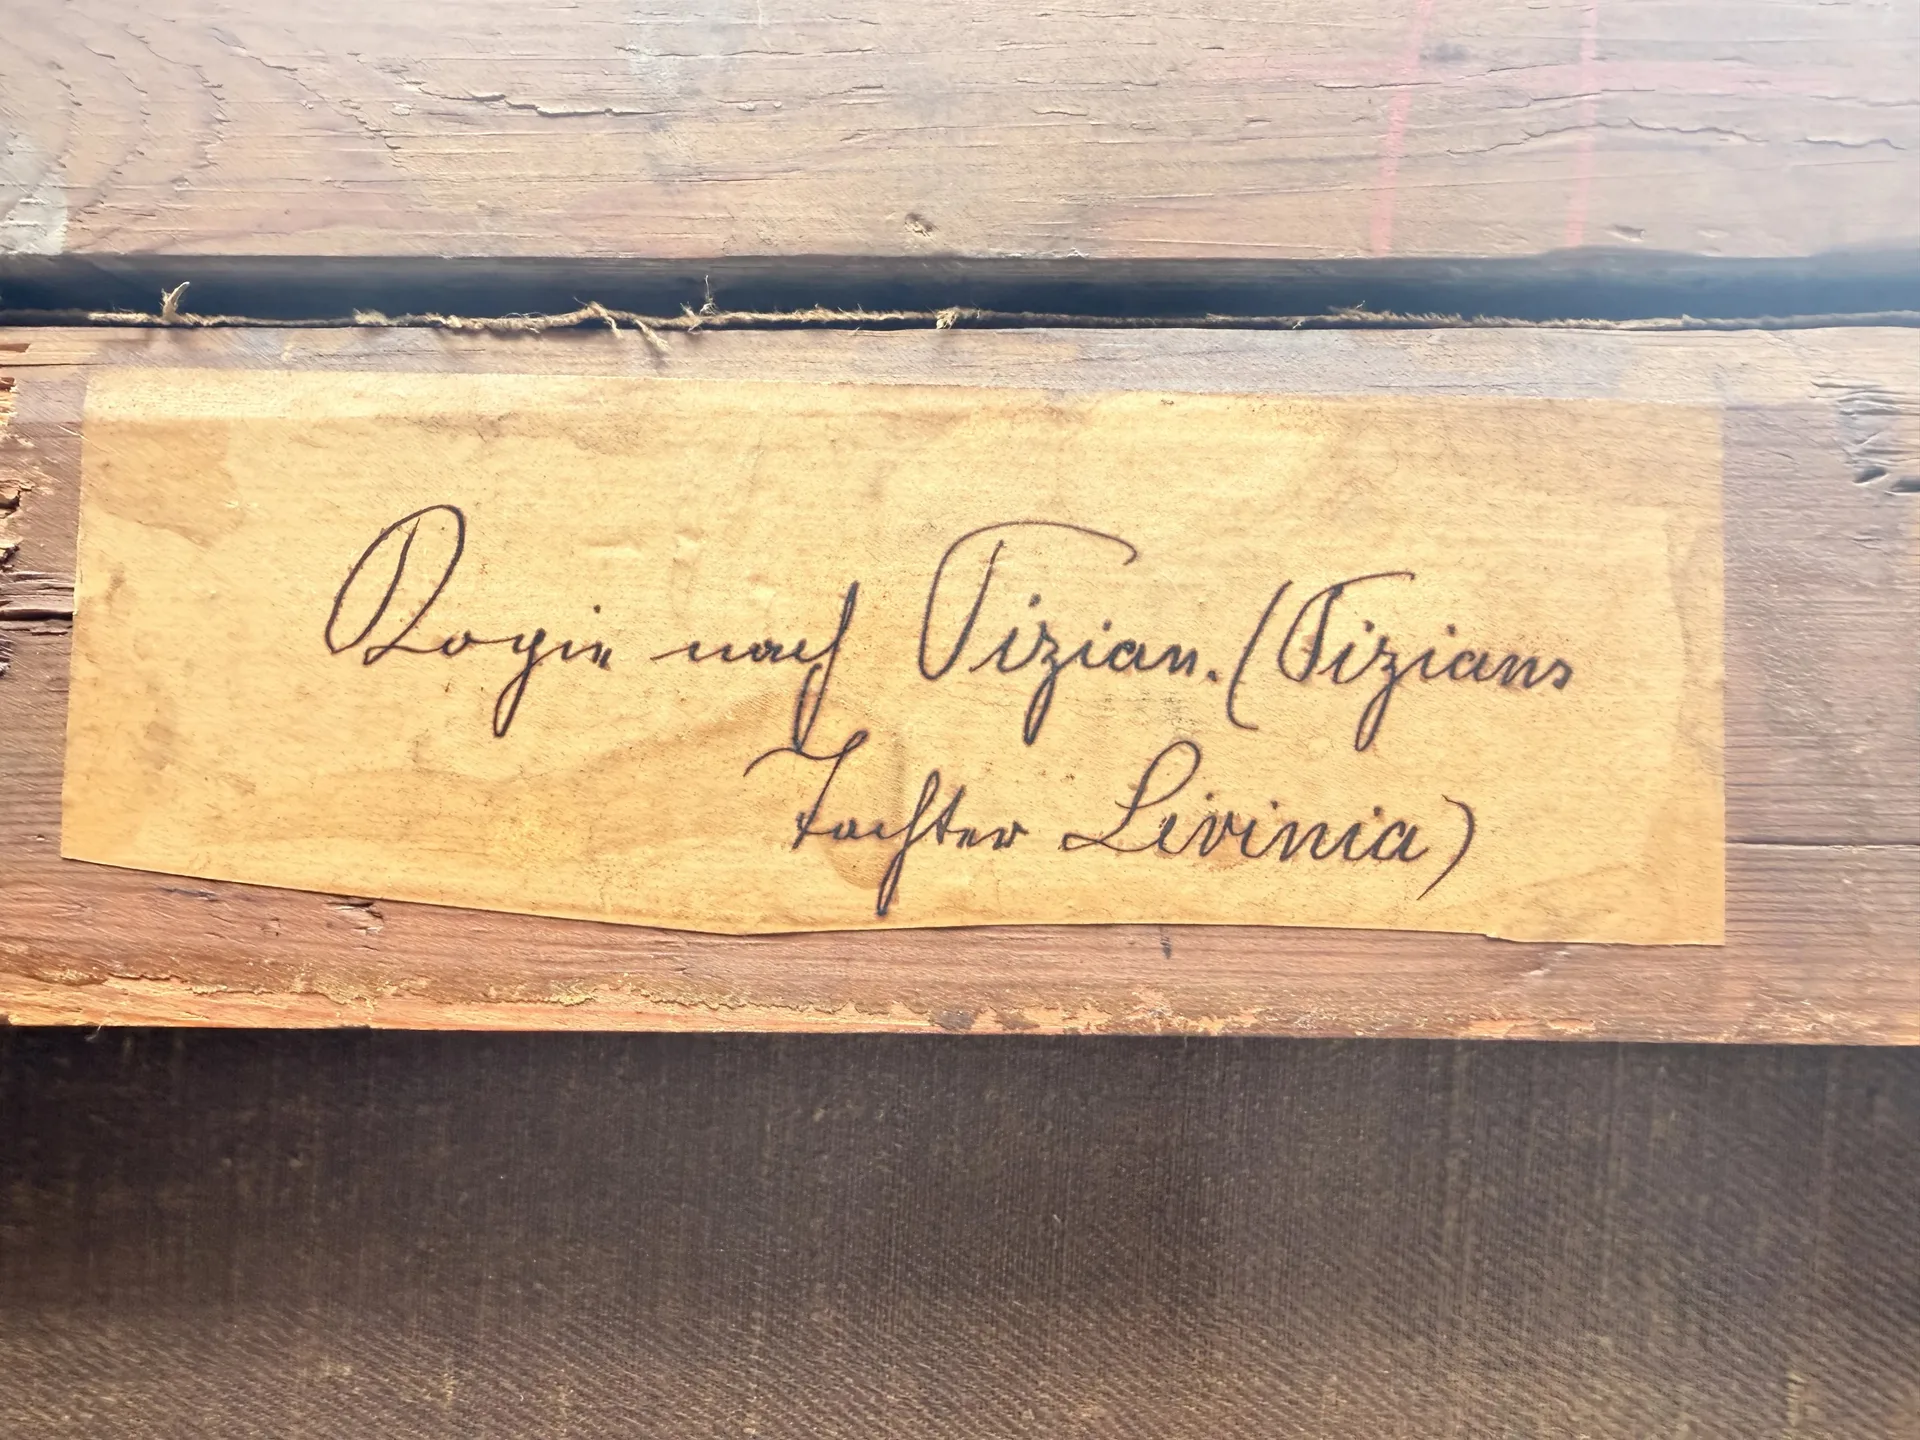 Kopie nach Tizian. (Tizians
Tochter Livinia)